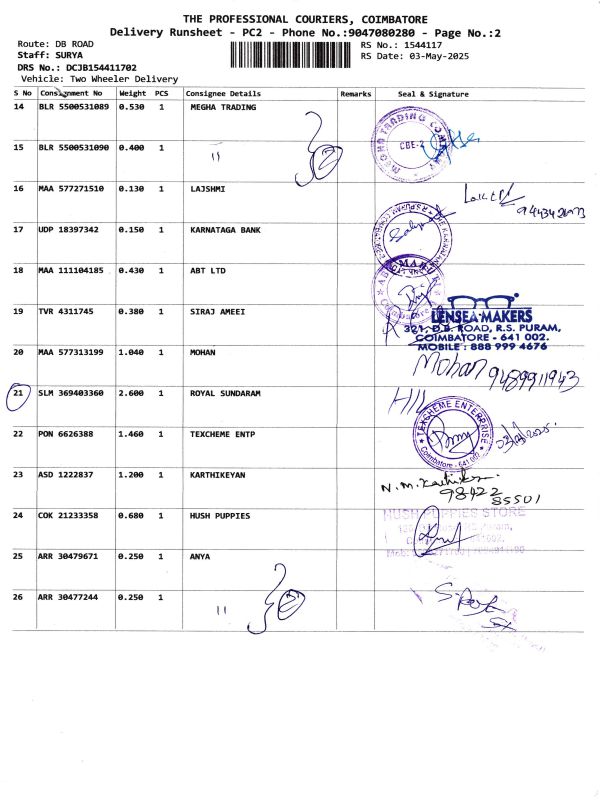 THE PROFESSIONAL COURIERS, COIMBATORE
Delivery Runsheet - PC2 - Phone No.:9047080280 - Page No.:2
Route: DB ROAD
RS No.: 1544117
Staff: SURYA
RS Date: 03-May-2025
DRS No.: DCJB154411702
Vehicle: Two Wheeler Delivery
S No Consignment No Weight PCS Consignee Details Remarks Seal & Signature
14 BLR 5500531089 0.530 1 MEGHA TRADING
MEGHA TRADING COMPANY
CBE-2
15 BLR 5500531090 0.400 1 11
16 MAA 577271510 0.130 1 LAJSHMI
17 UDP 18397342 0.150 1 KARNATAGA BANK
18 MAA 111104185 0.430 1 ABT LTD
19 TVR 4311745 0.380 1 SIRAJ AMEEI
LENSEA-MAKERS
321, D.B. ROAD, R.S. PURAM,
COIMBATORE - 641 002.
MOBILE : 888 999 4676
20 MAA 577313199 1.040 1 MOHAN
Mohan 9489911943
21 SLM 369403360 2.600 1 ROYAL SUNDARAM
22 PON 6626388 1.460 1 TEXCHEME ENTP
TEXCHEME ENTERPRISE
Coimbatore - 641 002
23 ASD 1222837 1.200 1 KARTHIKEYAN
98422
85501
24 COK 21233358 0.680 1 HUSH PUPPIES
HUSH PUPPIES STORE
25 ARR 30479671 0.250 1 ANYA
26 ARR 30477244 0.250 1 11